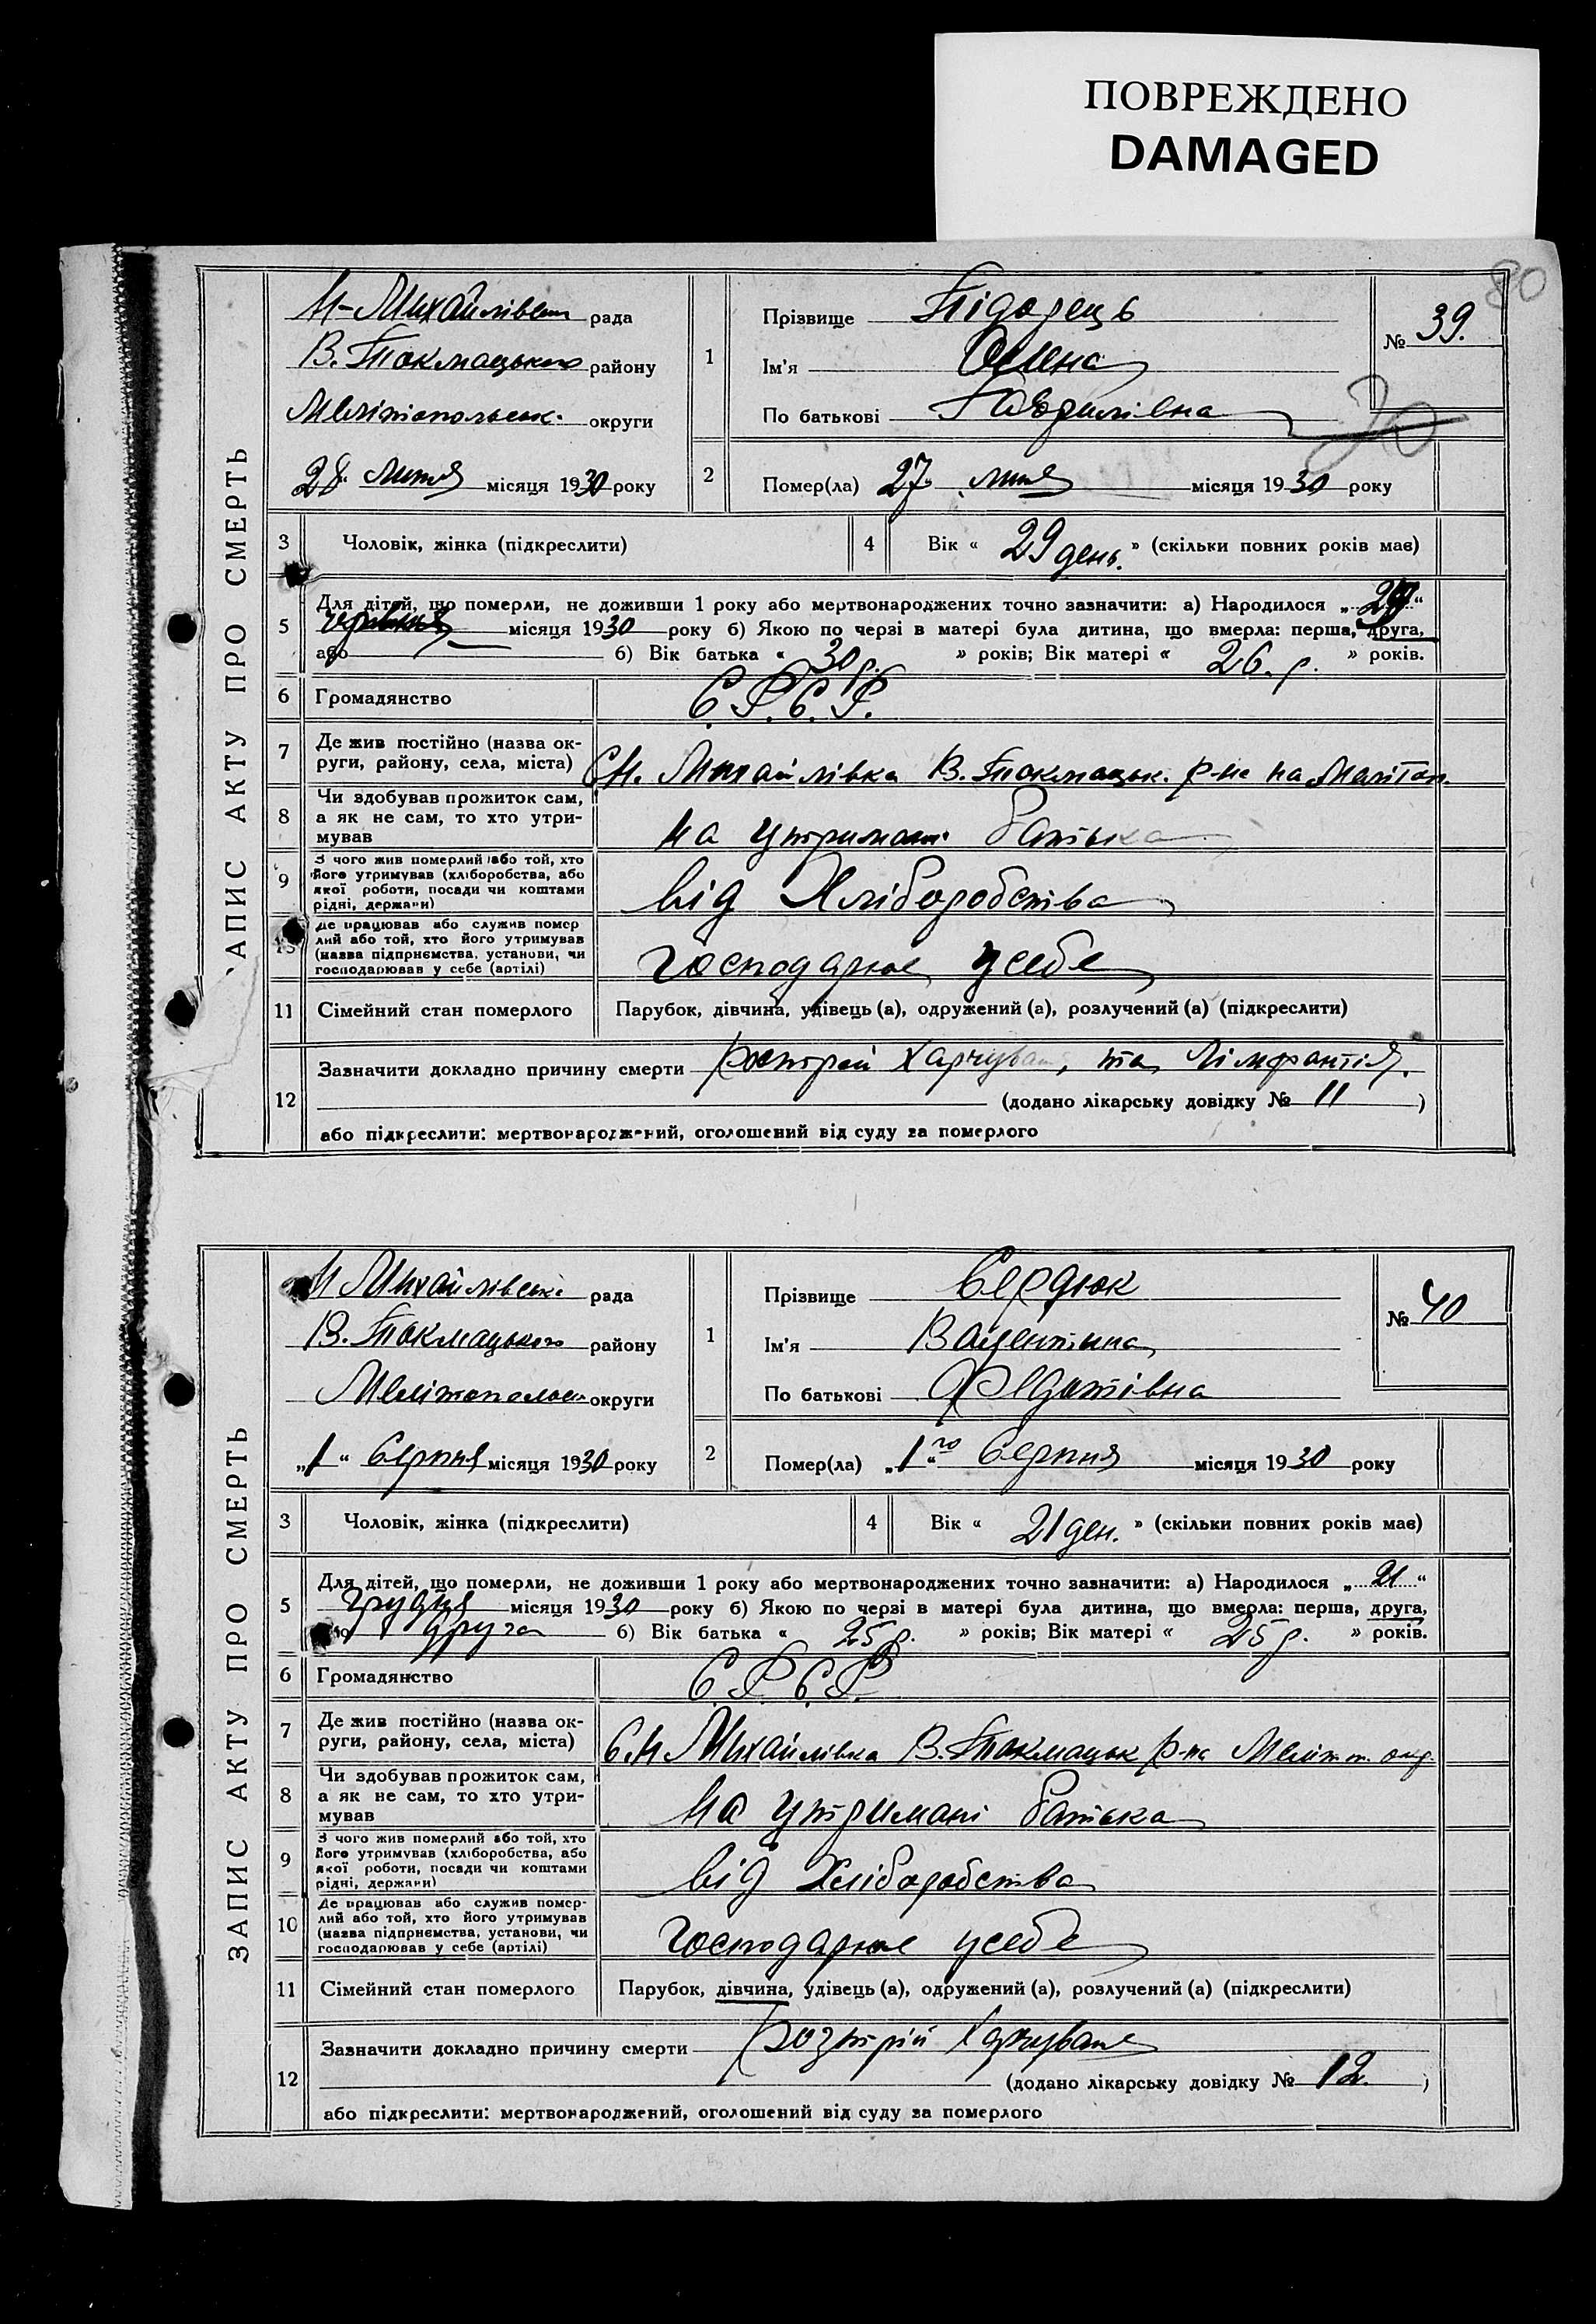 ПОВРЕЖДЕНО
DAMAGED
80
ЗАПИС АКТУ ПРО СМЕРТЬ
Н-Михайлівськ рада
В. Токмацького району
Мелітопольськ. округи
28 липня місяця 1930 року
1
Прізвище
Ім'я Олена
По батькові Гаврилівна
№ 39.
2
Помер(ла) 27 липня місяця 1930 року
3 Чоловік, жінка (підкреслити)
4 Вік « 29 день. » (скільки повних років має)
5 Для дітей, що померли, не доживши 1 року або мертвонароджених точно зазначити: а) Народилося „ “
місяця 1930 року б) Якою по черзі в матері була дитина, що вмерла: перша, друга,
або б) Вік батька « 30 р. » років; Вік матері « 26. р. » років.
6 Громадянство С.Р.С.Р.
7 Де жив постійно (назва округи, району, села, міста) С Н. Михайлівка В. Токмацьк. р-на на Мелітоп.
8 Чи здобував прожиток сам, а як не сам, то хто утримував На утримані батька
9 З чого жив померлий або той, хто його утримував (хліборобства, або якої роботи, посади чи коштами рідні, держави) Від Хліборобства
10 Де працював або служив померлий або той, хто його утримував (назва підприємства, установи, чи господарював у себе (артілі) Господарює усебе
11 Сімейний стан померлого Парубок, дівчина, удівець (а), одружений (а), розлучений (а) (підкреслити)
12 Зазначити докладно причину смерти Розтрій харчуваня, та
(додано лікарську довідку № 11 )
або підкреслити: мертвонароджений, оголошений від суду за померлого
ЗАПИС АКТУ ПРО СМЕРТЬ
Н Михайлівська рада
В. Токмацького району
Мелітопольськ округи
„1“ Серпня місяця 1930 року
1
Прізвище Сердюк
Ім'я Валентина
По батькові Федотівна
№ 40
2
Помер(ла) „1го“ Серпня місяця 1930 року
3 Чоловік, жінка (підкреслити)
4 Вік « 21 ден. » (скільки повних років має)
5 Для дітей, що померли, не доживши 1 року або мертвонароджених точно зазначити: а) Народилося „ 21 “
грудня місяця 1930 року б) Якою по черзі в матері була дитина, що вмерла: перша, друга,
або друга б) Вік батька « 25 р. » років; Вік матері « 25 р. » років.
6 Громадянство С.Р.С.Р.
7 Де жив постійно (назва округи, району, села, міста) С. Н Михайлівка В. Токмацьк р-на Меліт. окр.
8 Чи здобував прожиток сам, а як не сам, то хто утримував На утримані батька
9 З чого жив померлий або той, хто його утримував (хліборобства, або якої роботи, посади чи коштами рідні, держави) Від Хліборобства
10 Де працював або служив померлий або той, хто його утримував (назва підприємства, установи, чи господарював у себе (артілі) Господарює усебе
11 Сімейний стан померлого Парубок, дівчина, удівець (а), одружений (а), розлучений (а) (підкреслити)
12 Зазначити докладно причину смерти Розтрій харчуваня
(додано лікарську довідку № 12. )
або підкреслити: мертвонароджений, оголошений від суду за померлого